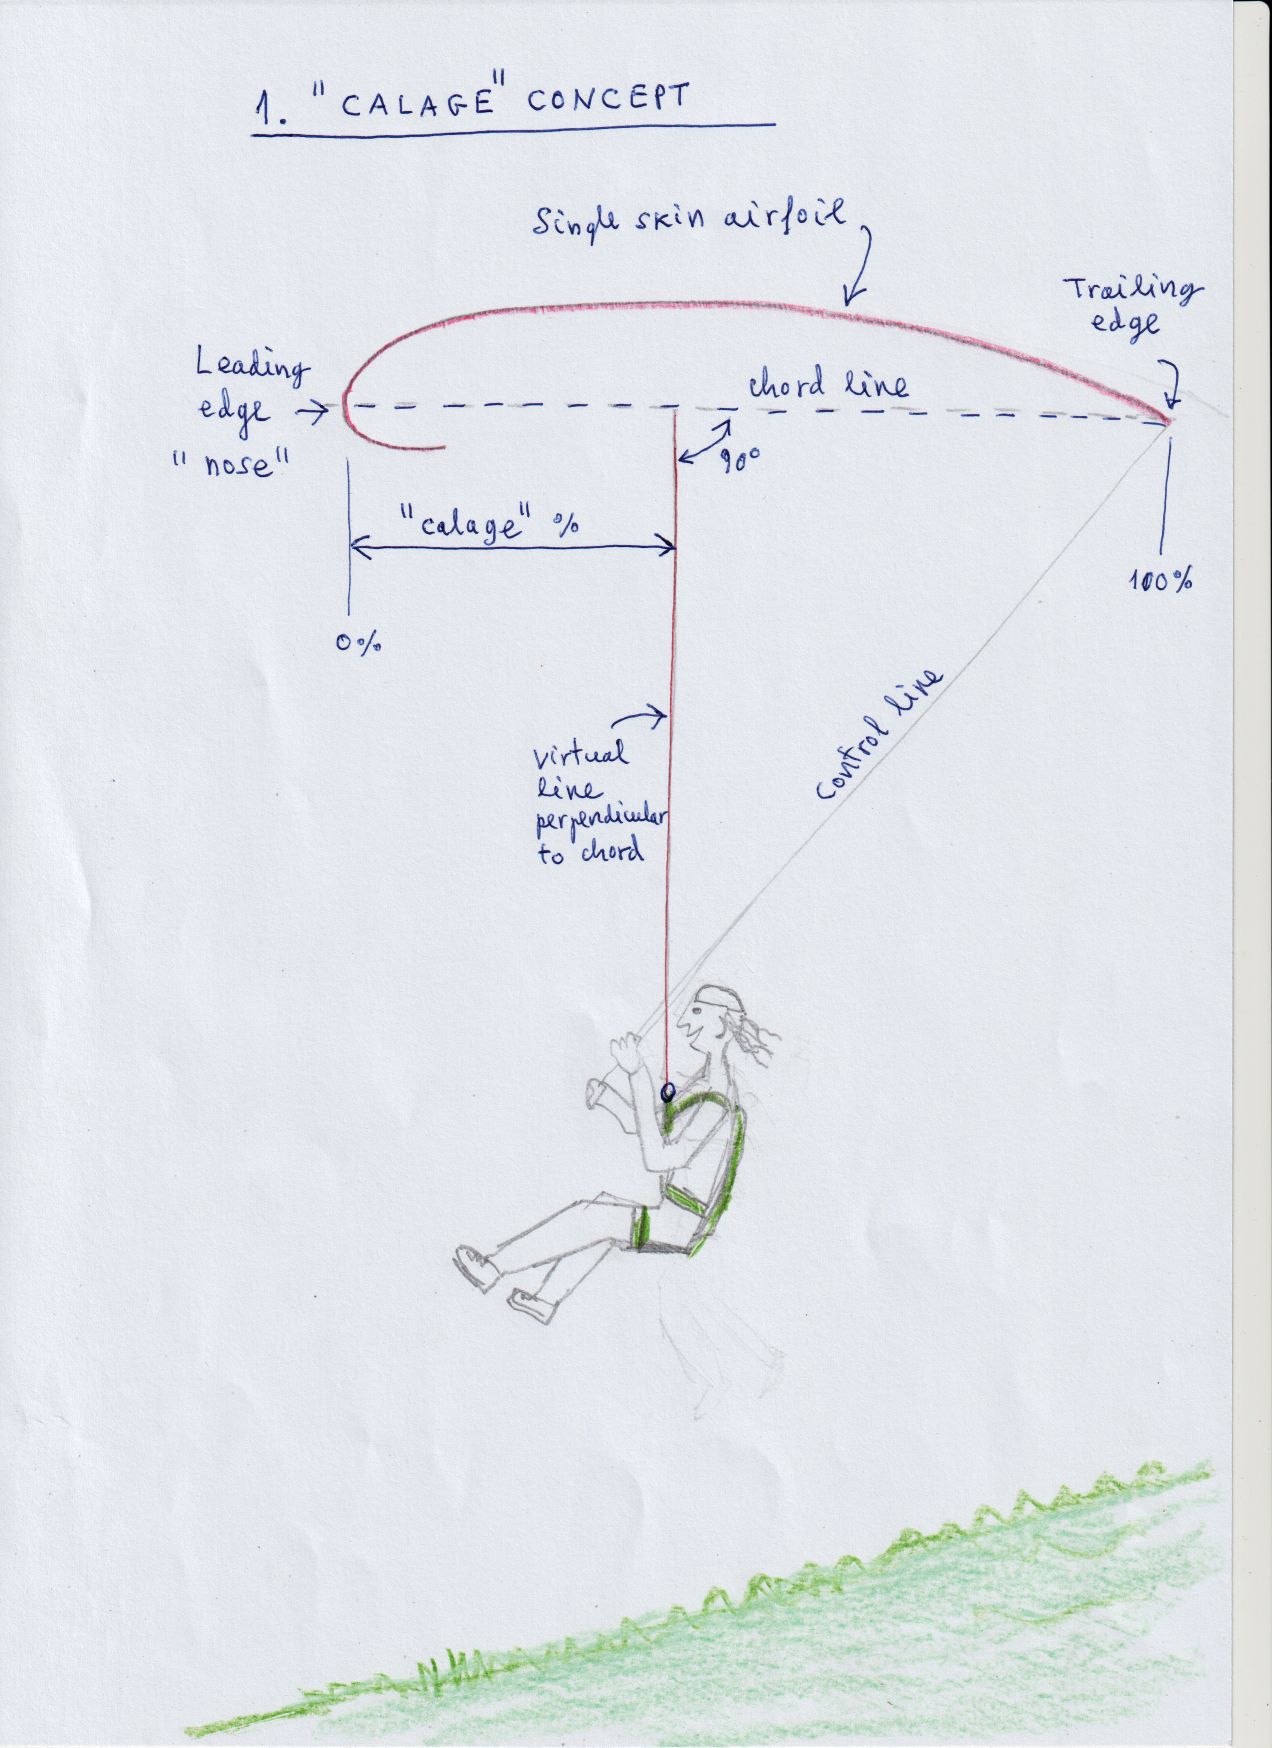 1. "CALAGE" CONCEPT
Single skin airfoil
Trailing
edge
Leading
edge
"nose"
chord line
90°
"calage" %
100%
0%
control line
virtual
line
perpendicular
to chord